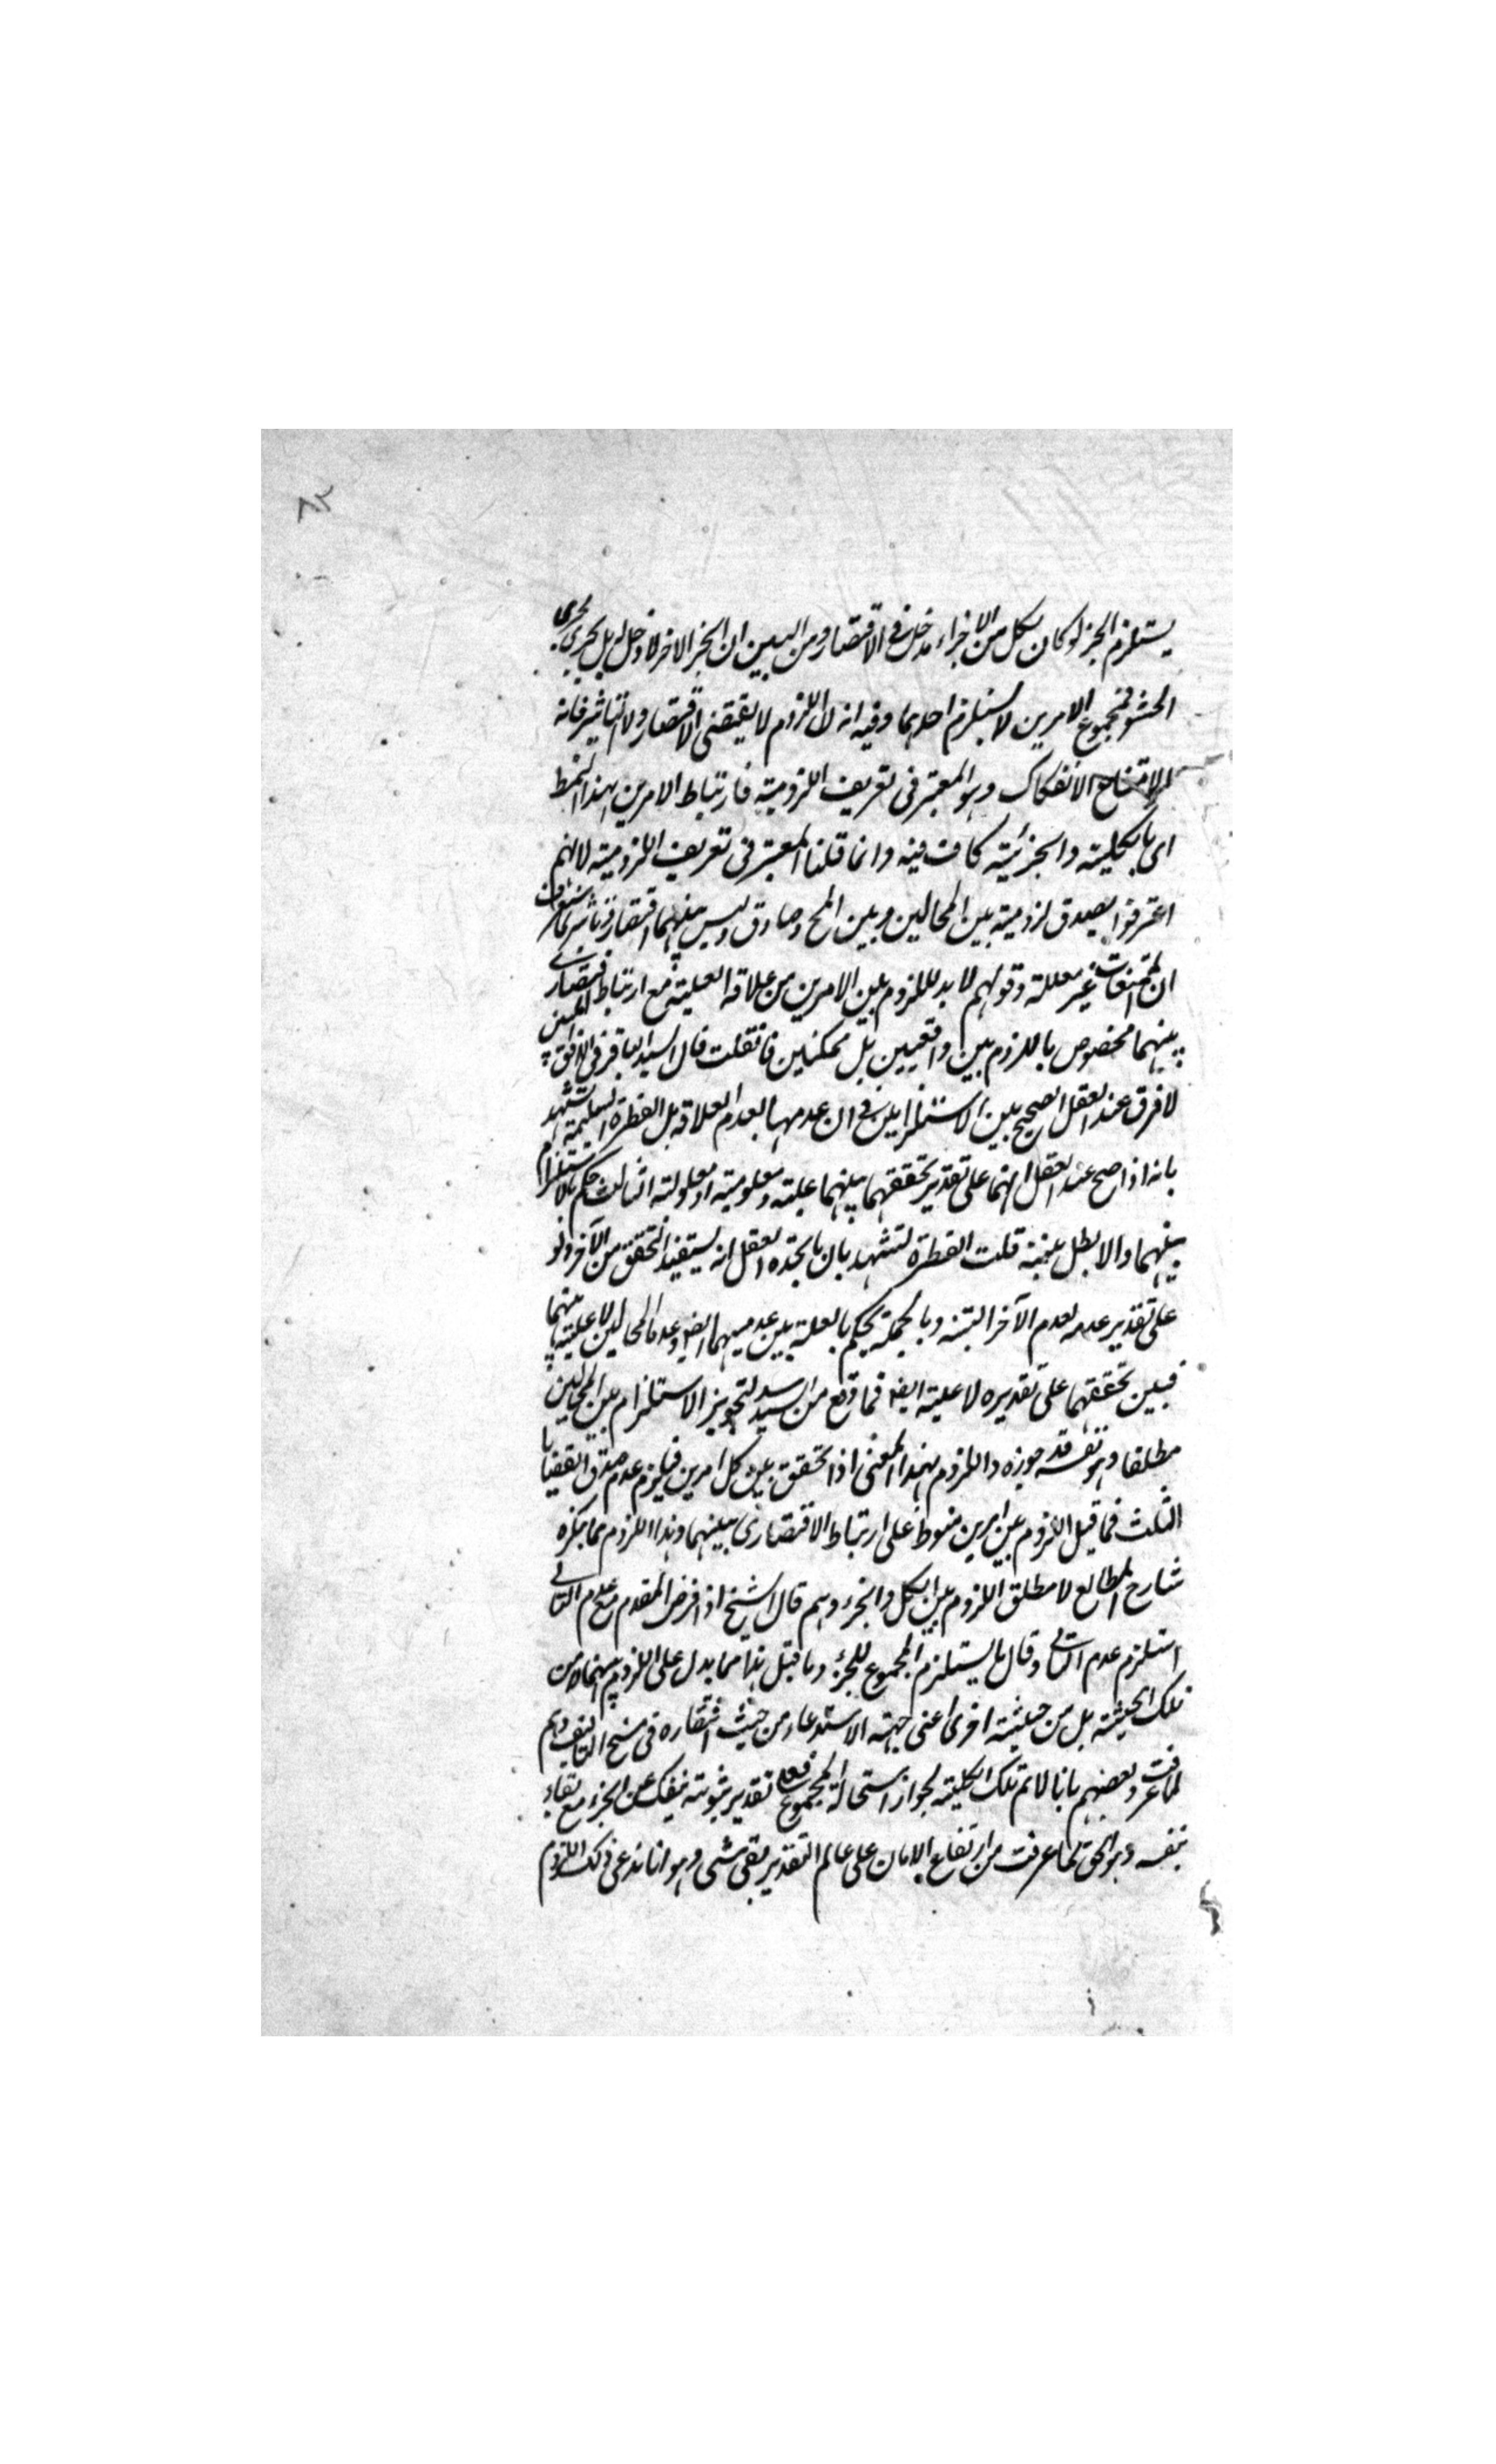 ٨٢
يستلزم الجزء لو كان لكل من الاجزاء مدخل فى الاقتضاء ومن البين ان الجزء الاخر لا دخل له بل يجرى مجرى
الحشو فمجموع الامرين لا يستلزم احدهما وفيه ان اللزوم لا يقتضى الاقتضاء ولا التاثير فانه
امتناع الانفكاك وهو المعتبر فى تعريف اللزومية فارتباط الامرين بهذا النمط
اى بالكلية والجزئية كاف فيه وانما قلنا المعتبر فى تعريف اللزومية لانهم
اعترفوا بصدق لزومية بين المحالين وبين المح وصادق وليس بينهما اقتضاء وتاثير
ان الممتنعات غير معللة وقولهم لا بد للزوم بين الامرين من علاقة العلية مع ارتباط افتقارى
بينهما مخصوص باللزوم بين واقعيين بل ممكنين فانقلت قال السيد الباقر فى الافق المبين
لا فرق عند العقل الصحيح بين الاستلزامين فى ان عدمهما بعدم العلاقة بل الفطرة السليمة تشهد
بانه اذا صح عند العقل انهما على تقدير تحققهما بينهما علية ومعلولية او معلولية الثالث حكم بالاستلزام
بينهما والا بطل قلت الفطرة تشهد بان ما يجده العقل انه يستفيد التحقق من الآخر ولو
على تقدير عدمه لعدم الآخر البتة وبالجملة يحكم بالعلة بين عدميهما ايضا وعدما المحالين لا علية بينهما
فبين تحققهما على تقديره لا علية ايضا فما وقع من السيد لتجويز الاستلزام بين المحالين
مطلقا وهو نفسه قد جوزه واللزوم بهذا المعنى اذا تحقق بين كل امرين فيلزم عدم صدق القضايا
الثلث فما قيل اللزوم بين امرين منوط على ارتباط الاقتضائى بينهما وهذا اللزوم مما ينكره
شارح المطالع لا مطلق اللزوم بين الكل والجزء وهم قال الشيخ اذا فرض المقدم مع عدم التالى
استلزم عدم التالى وقال ما يستلزم المجموع للجزء وما قبل هذا مما يدل على اللزوم بينهما لا من
تلك الحيثية بل من حيثية اخرى اعنى جهة الاستدعاء من حيث افتقاره فى سنخ التاليف وهم
لما عرفت وبعضهم بانا لا نم تلك الكلية لجواز استحالة المجموع فعلى تقدير ثبوته ينفك عن الجزء مع بقاء
نفسه وهو الحق لما عرفت من ارتفاع الامان على عالم التقدير بقى شى وهو انا ندعى ذلك اللزوم